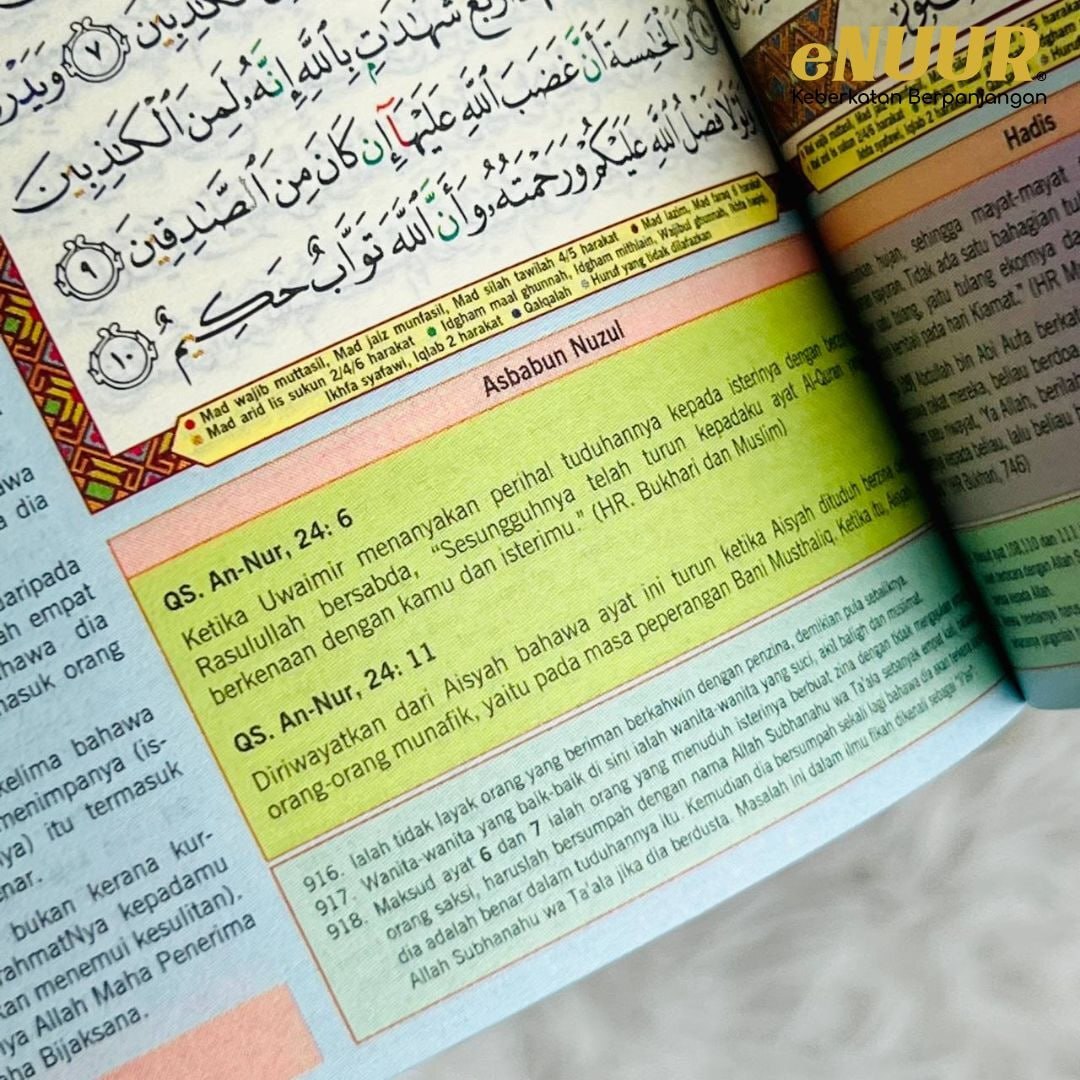 eNUUR®
Keberkatan Berpanjangan
ٱلْكَٰذِبِينَ ٧ وَيَدْرَ
أَرْبَعَ شَهَٰدَٰتٍ بِٱللَّهِ إِنَّهُۥ لَمِنَ ٱلْكَٰذِبِينَ
٨ وَٱلْخَٰمِسَةَ أَنَّ غَضَبَ ٱللَّهِ عَلَيْهَآ إِن كَانَ مِنَ ٱلصَّٰدِقِينَ ٩
وَلَوْلَا فَضْلُ ٱللَّهِ عَلَيْكُمْ وَرَحْمَتُهُۥ وَأَنَّ ٱللَّهَ تَوَّابٌ حَكِيمٌ ١٠
Mad wajib muttasil, Mad jaiz munfasil, Mad silah tawilah 4/5 harakat Mad lazim, Mad farq 6 harakat
Mad arid lis sukun 2/4/6 harakat Idgham maal ghunnah, Idgham mithlain, Wajibul ghunnah,
Ikhfa syafawi, Iqlab 2 harakat Qalqalah Huruf yang tidak dilafazkan
Asbabun Nuzul
QS. An-Nur, 24: 6
Ketika Uwaimir menanyakan perihal tuduhannya kepada isterinya dengan
Rasulullah bersabda, "Sesungguhnya telah turun kepadaku ayat Al-Quran
berkenaan dengan kamu dan isterimu." (HR. Bukhari dan Muslim)
QS. An-Nur, 24: 11
Diriwayatkan dari Aisyah bahawa ayat ini turun ketika Aisyah dituduh berzina
orang-orang munafik, yaitu pada masa peperangan Bani Musthaliq. Ketika itu, Aisyah
916. Ialah tidak layak orang yang beriman berkahwin dengan penzina, demikian pula sebaliknya.
917. Wanita-wanita yang baik-baik di sini ialah wanita-wanita yang suci, akil baligh dan muslimat.
918. Maksud ayat 6 dan 7 ialah orang yang menuduh isterinya berbuat zina dengan tidak mengajukan
orang saksi, haruslah bersumpah dengan nama Allah Subhanahu wa Ta'ala sebanyak empat kali,
dia adalah benar dalam tuduhannya itu. Kemudian dia bersumpah sekali lagi bahawa dia akan
Allah Subhanahu wa Ta'ala jika dia berdusta. Masalah ini dalam ilmu fikah dikenali sebagai "li'an"
awa
a dia
daripada
ah empat
hawa dia
masuk orang
kelima bahawa
menimpanya (is-
nya) itu termasuk
enar.
bukan kerana kur-
rahmatNya kepadamu
kan menemui kesulitan).
nya Allah Maha Penerima
aha Bijaksana.
Hadis
hujan, sehingga mayat-mayat
Tidak ada satu bahagian
yaitu tulang ekornya
pada hari Kiamat." (HR
Abdullah bin Abi Aufa
mereka, beliau berdoa
"Ya Allah,
kepada beliau, lalu beliau
(HR Bukhari, 746)